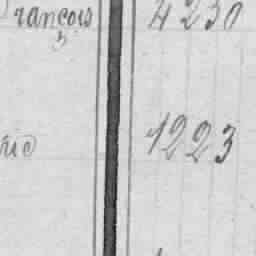 François 4230
3
rie 1223